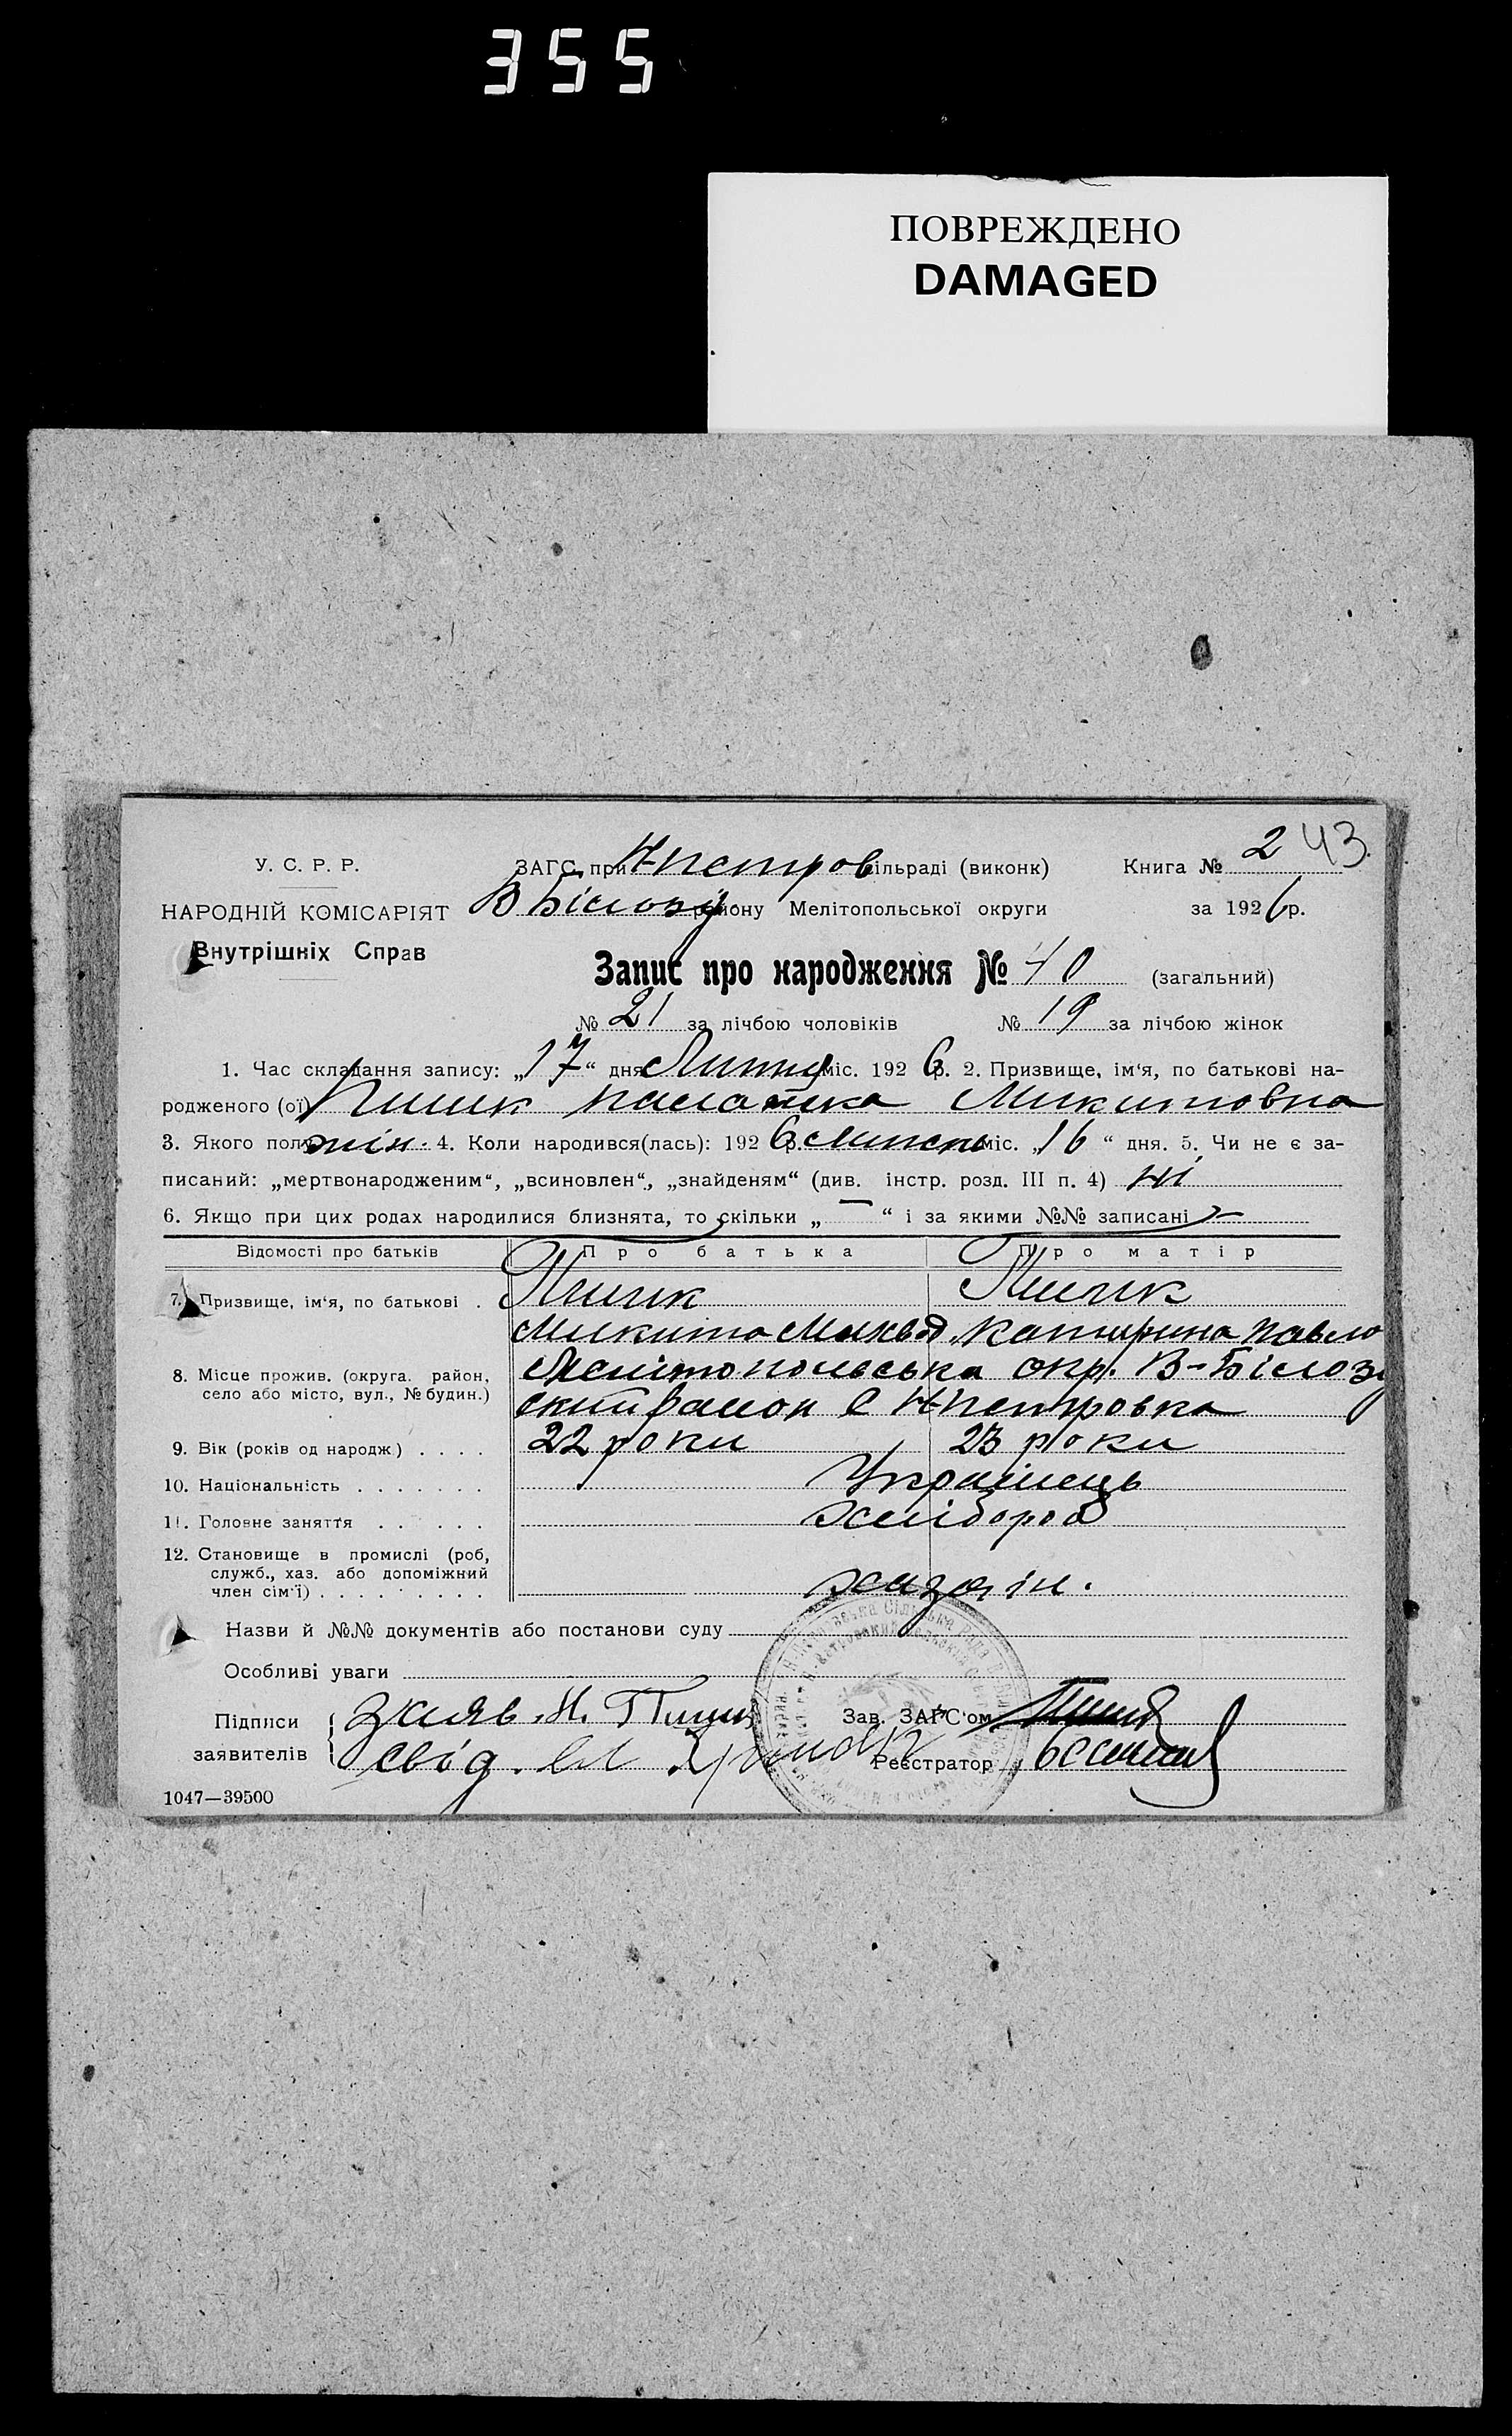 355
ПОВРЕЖДЕНО
DAMAGED
У. С. Р. Р.
ЗАГС при Н-петров ільраді (виконк)
Книга № 2 43
НАРОДНІЙ КОМІСАРІЯТ
В Білозір району Мелітопольської округи
за 1926 р.
Внутрішніх Справ
Запис про народження № 40 (загальний)
№ 21 за лічбою чоловіків № 19 за лічбою жінок
1. Час складання запису: „17“ дня Липня міс. 1926 р. 2. Призвище, ім‘я, по батькові на-
родженого (ої) Микитовна
3. Якого полу жін. 4. Коли народився(лась): 1926 р. Липень міс. „16“ дня. 5. Чи не є за-
писаний: „мертвонародженим“, „всиновлен“, „знайденям“ (див. інстр. розд. III п. 4) ні
6. Якщо при цих родах народилися близнята, то скільки „—“ і за якими №№ записані —
Відомості про батьків Про батька Про матір
7. Призвище, ім‘я, по батькові .
Микита Катирина Павло
8. Місце прожив. (округа. район, село або місто, вул., № будин.)
Мелітопольська окр. В-Білозі
ский район с Н-петровка
9. Вік (років од народж) . . . . 22 роки 23 роки
10. Національність . . . . . . . Українець
11. Головне заняття . . . . . . хлібороб
12. Становище в промислі (роб, служб., хаз. або допоміжний член сім‘ї) . . . . . . . . . хазяїн.
Назви й №№ документів або постанови суду
Особливі уваги
Підписи заявителів
заяв. Н.
свід.
Зав. ЗАГС‘ом
Реєстратор
1047—39500